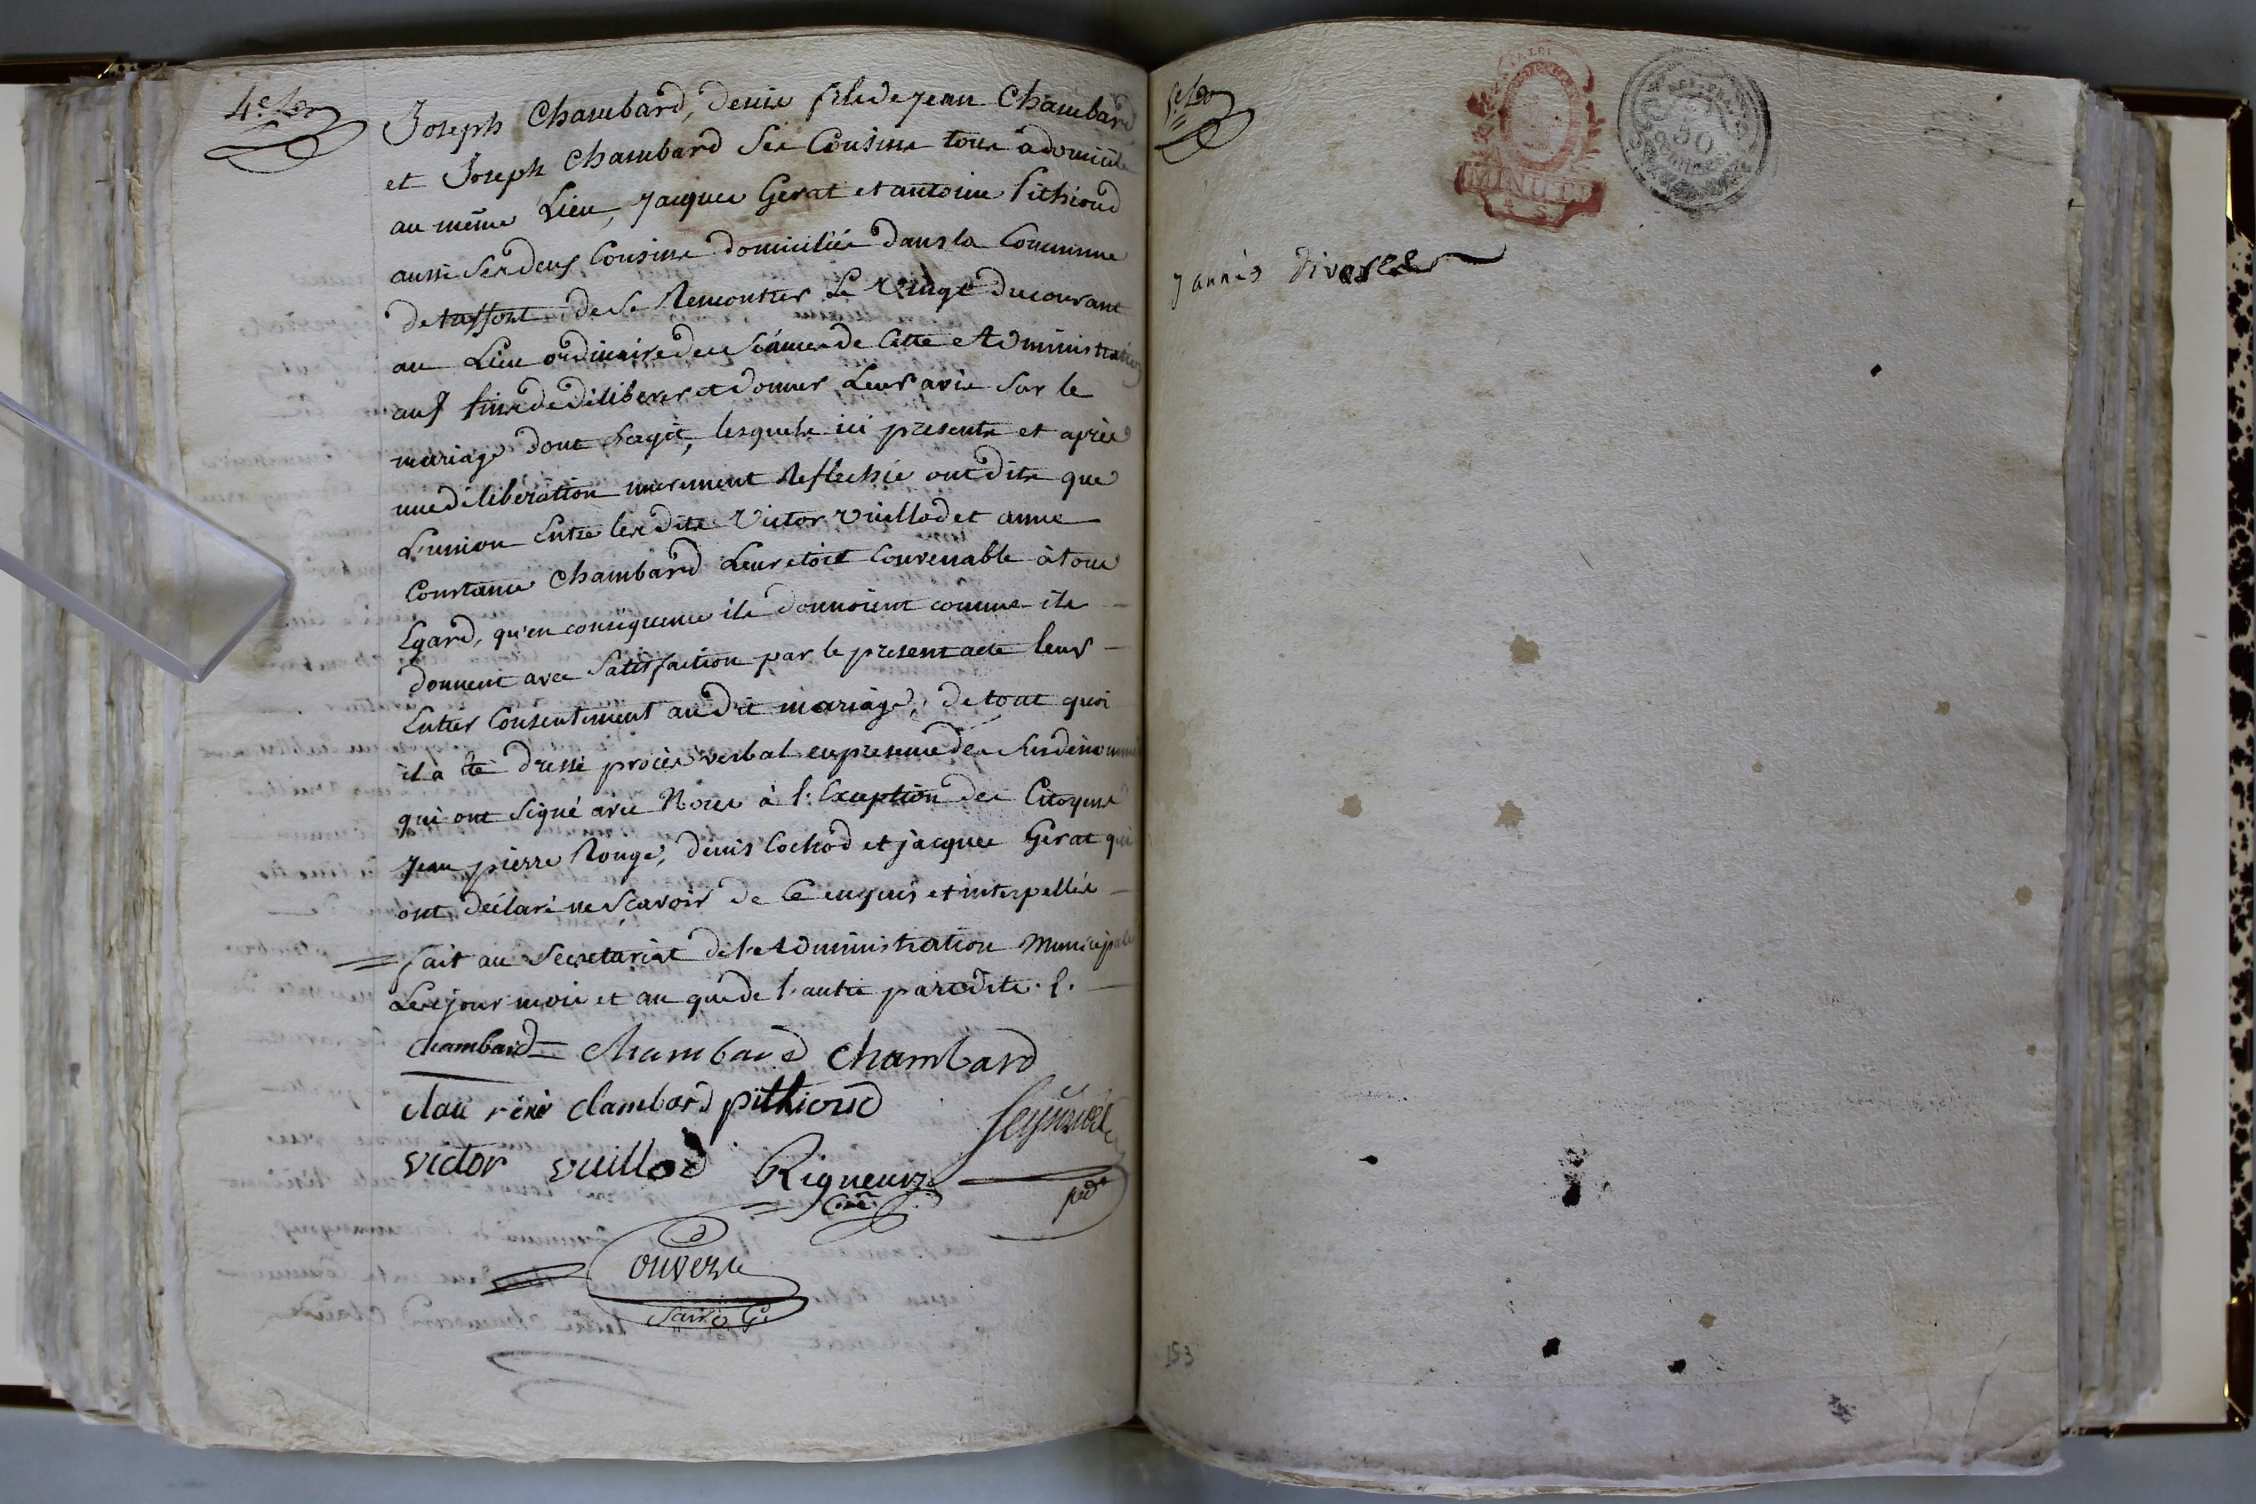 4.e
Joseph Chambard, denis fils de jean Chambard
et Joseph Chambard Ses Cousins tous a domicile
au même Lieu, Jacques Gerat et antoine Pithioud
aussi Ses deux Cousins domiciliés dans la Commune
de taffont de Se Rencontrer Le vingt du courant
au Lieu ordinaire des Séances de Cette Administration
aux fins de déliberer et donner Leur avis Sur le
mariage dont Sagit, lesquels ici presents et après
une déliberation murement Reflechie ont dits que
L'union Entre les dits Victor Vuillod et anne
Constance Chambard Leur etoit Convenable à tous
Egard, qu'en conséquence ils donnoient comme ils
donnent avec Satisfaction par le present acte leur
Entier Consentement au dit mariage, de tout quoi
il a été dressé procès verbal en presence des Susdénommés
qui ont Signé avec Nous à l'Exception des Citoyens
Jean pierre Rouge, denis Cochod et jacques Gerat qui
ont déclaré ne Sçavoir de Ce enquis et interpellés
= fait au Secretariat de l'Administration Municipale
Les jour mois et an que de l'autre part dits. /.
Chambard = Chambard Chambard
clau réné clambard pithioud
victor vuillod Rigneur
Cre pdt
ouverte
Sair G.
5e
MINUTE
50
7 années diverses
153